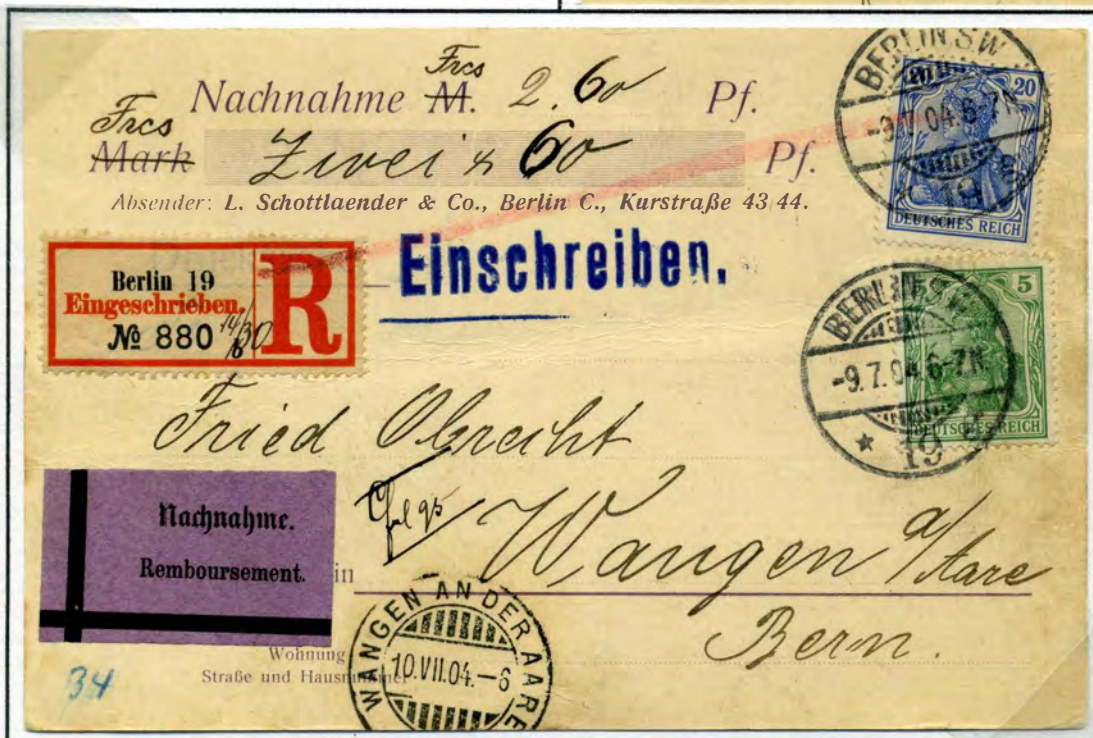 Frcs
Nachnahme M. 2.60 Pf.
Frcs
Mark Zwei & 60 Pf.
Absender: L. Schottlaender & Co., Berlin C., Kurstraße 43/44.
BERLIN S.W
-9.7.04.6-7N.
* 19
20
DEUTSCHES REICH
Einschreiben.
Berlin 19
Eingeschrieben.
№ 880
R
BERLIN S.W
-9.7.04.6-7N.
* 19
5
DEUTSCHES REICH
Fried Obrecht
Nachnahme.
Remboursement.
in Wangen a/Aare
Bern.
WANGEN AN DER AARE
10.VII.04.-6
Wohnung
Straße und Hausnummer
34